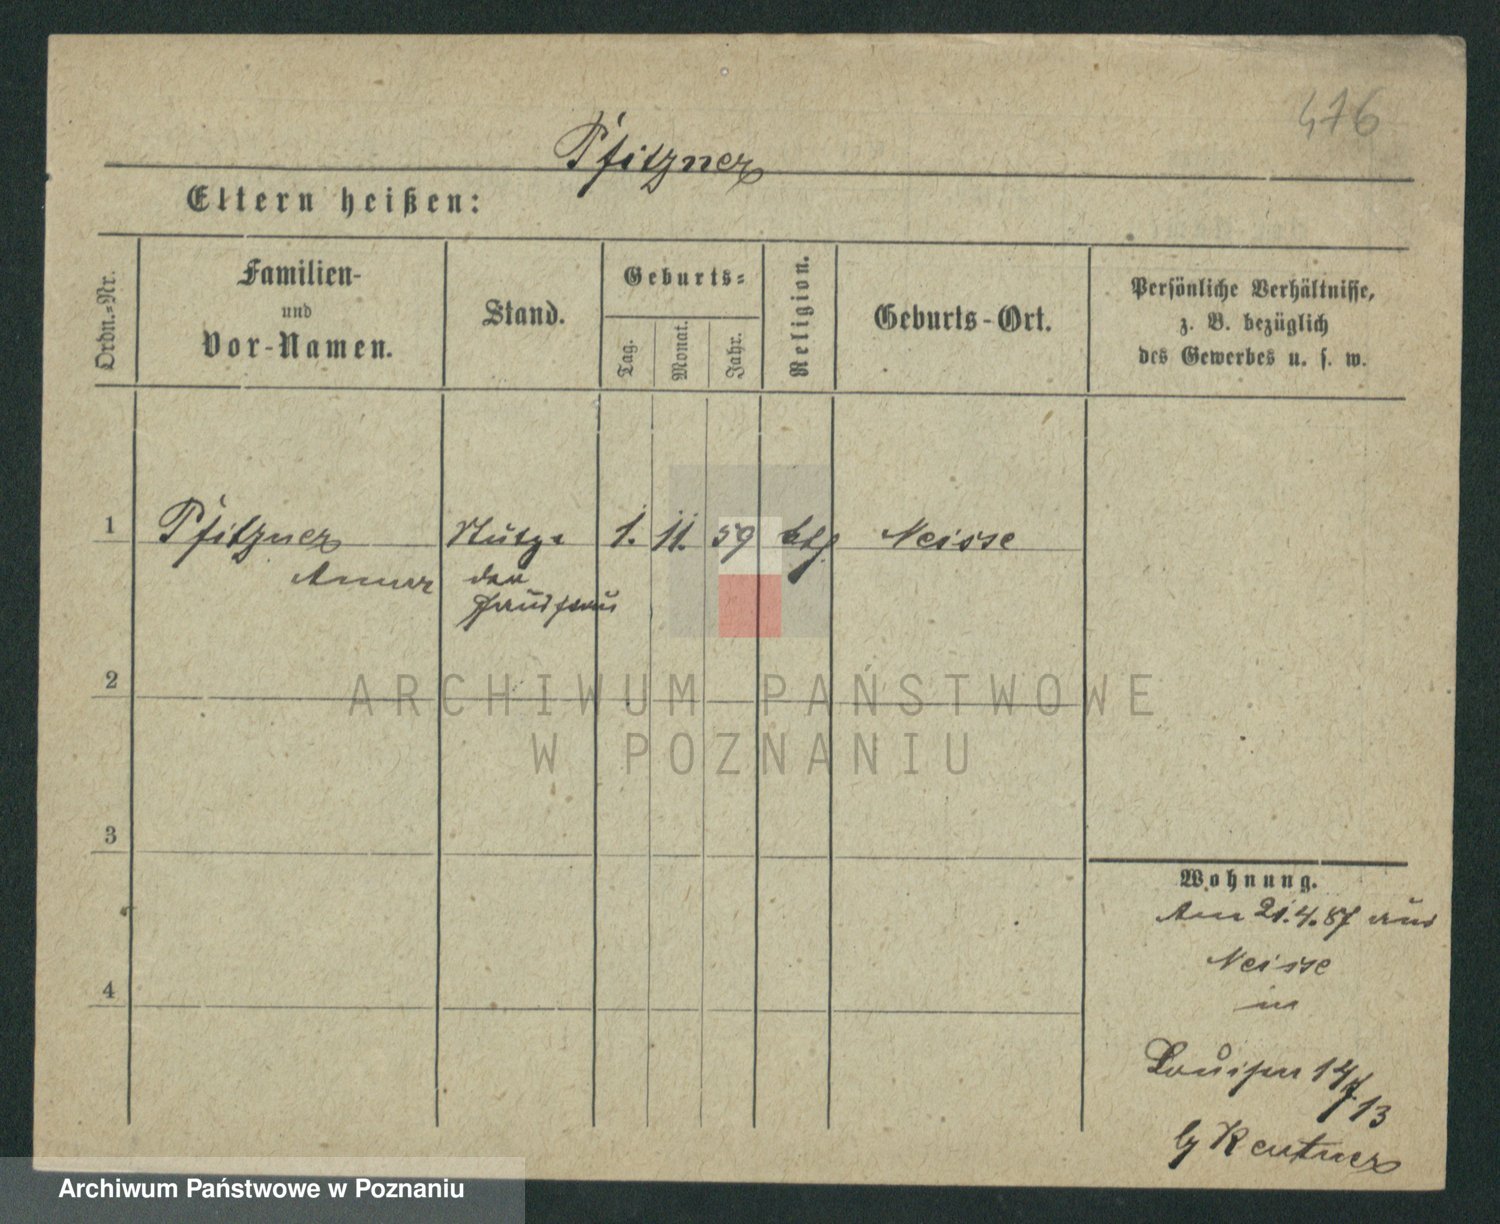 476
Pfitzner
Eltern heißen:
Ordn.-Nr.
Familien-
und
Vor-Namen.
Stand.
Geburts-
Tag.
Monat.
Jahr.
Religion.
Geburts-Ort.
Persönliche Verhältnisse,
z. B. bezüglich
des Gewerbes u. s. w.
1 Pfitzner Stütze 1. 11. 59 kth Neisse
Anna der
Hausfrau
2
3
4
Wohnung.
Am 21.4.87 aus
Neisse
in
Louisen 14
13
by Rentner
ARCHIWUM PAŃSTWOWE
W POZNANIU
Archiwum Państwowe w Poznaniu